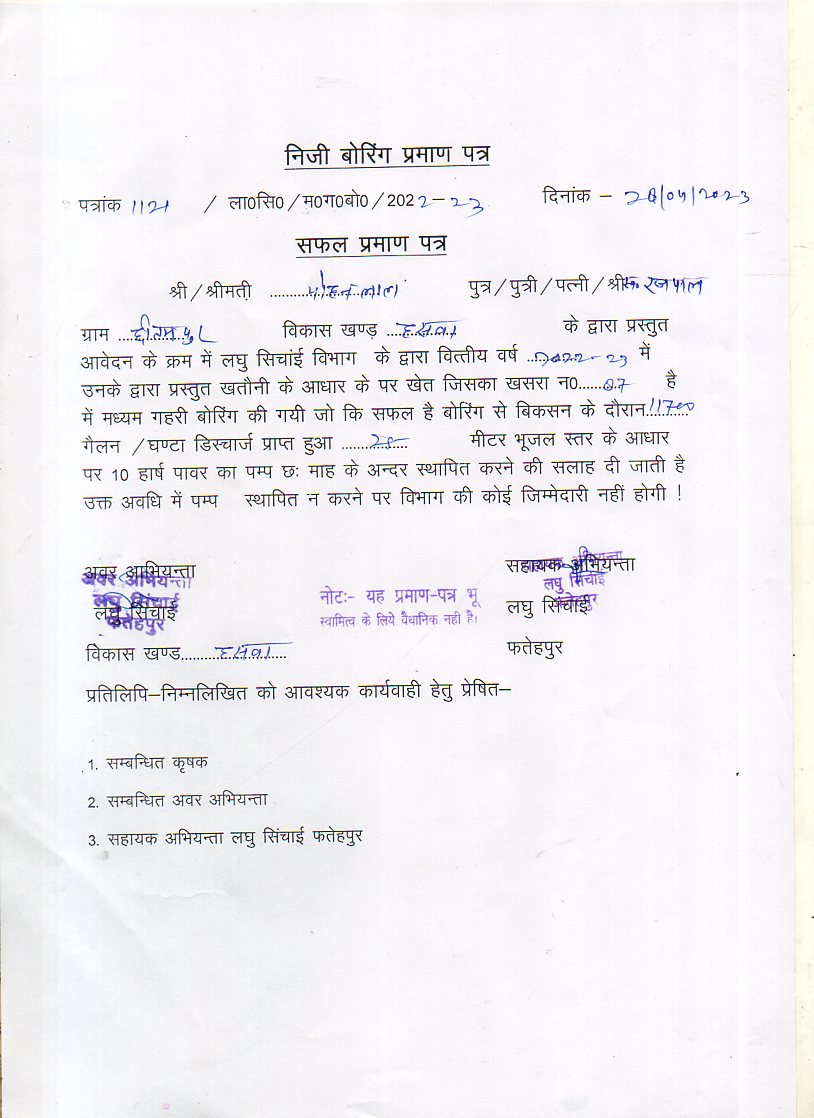 निजी बोरिंग प्रमाण पत्र
पत्रांक 1121 / ला0सि0/म0ग0बो0/2022-23 दिनांक –
सफल प्रमाण पत्र
श्री/श्रीमती मोहन लाल पुत्र/पुत्री/पत्नी/श्री
ग्राम विकास खण्ड़ हसवा के द्वारा प्रस्तुत
आवेदन के क्रम में लघु सिचांई विभाग के द्वारा वित्तीय वर्ष 2022-23 में
उनके द्वारा प्रस्तुत खतौनी के आधार के पर खेत जिसका खसरा न0 है
में मध्यम गहरी बोरिंग की गयी जो कि सफल है बोरिंग से बिकसन के दौरान 11700
गैलन /घण्टा डिस्चार्ज प्राप्त हुआ मीटर भूजल स्तर के आधार
पर 10 हार्ष पावर का पम्प छः माह के अन्दर स्थापित करने की सलाह दी जाती है
उक्त अवधि में पम्प स्थापित न करने पर विभाग की कोई जिम्मेदारी नहीं होगी !
अवर आभियन्ता सहायक अभियन्ता
अवर अभियन्ता सहायक अभियन्ता
लघु सिंचाई लघु सिंचाई
फतेहपुर फतेहपुर
लघु सिंचाई लघु सिंचाई
नोटः- यह प्रमाण-पत्र भू
स्वामित्व के लिये वैधानिक नही है।
फतेहपुर
विकास खण्ड हसवा
प्रतिलिपि–निम्नलिखित को आवश्यक कार्यवाही हेतु प्रेषित–
1. सम्बन्धित कृषक
2. सम्बन्धित अवर अभियन्ता
3. सहायक अभियन्ता लघु सिंचाई फतेहपुर